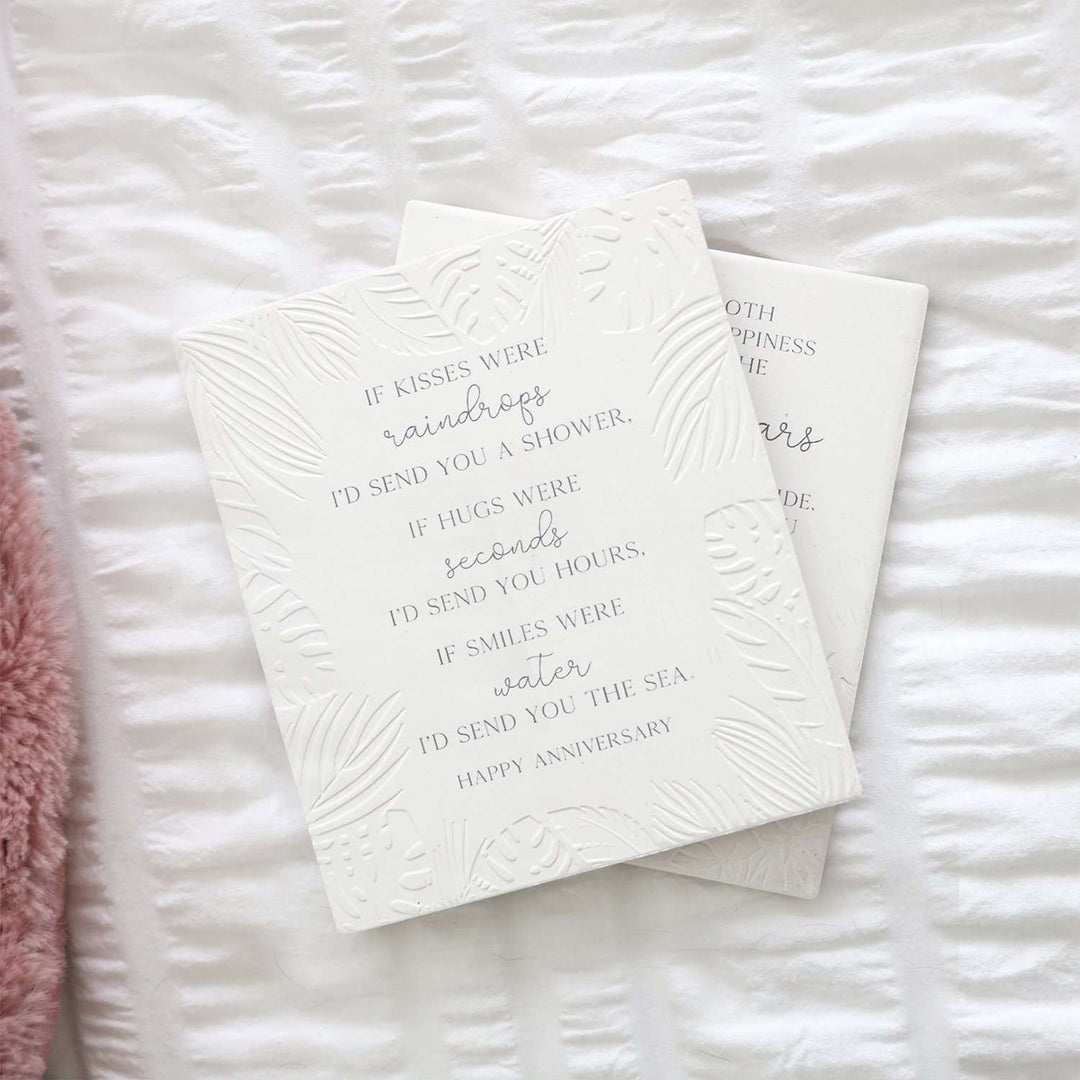 IF KISSES WERE
raindrops
I'D SEND YOU A SHOWER,
IF HUGS WERE
seconds
I'D SEND YOU HOURS,
IF SMILES WERE
water
I'D SEND YOU THE SEA.
HAPPY ANNIVERSARY
OTH
PPINESS
HE
ars
IDE,
U